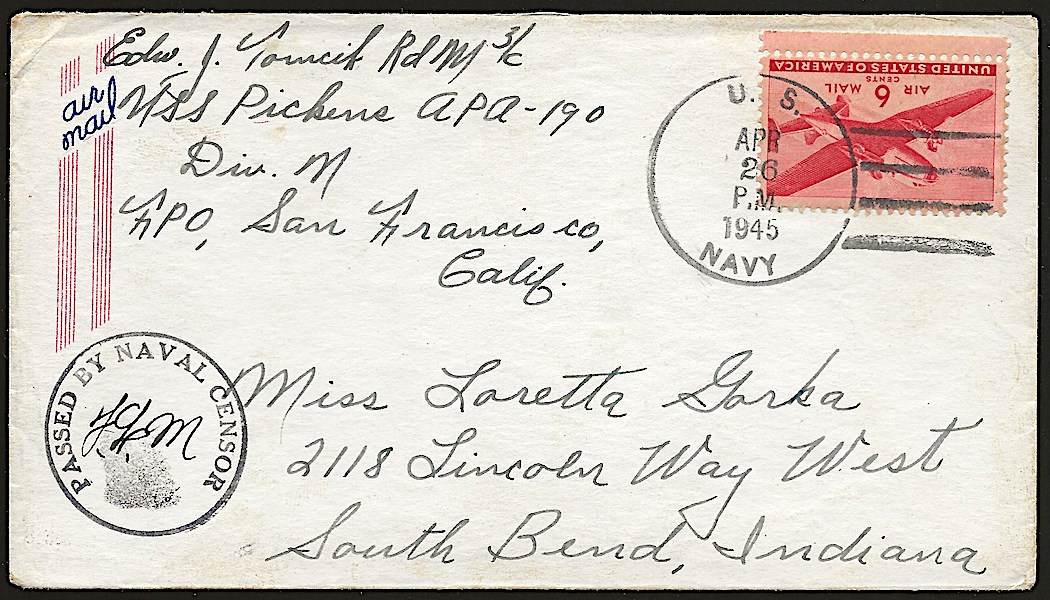 Edw. J. Tomcik RdM 3/c
air mail
USS Pickens APA-190
Div. M
FPO, San Francisco,
Calif.
U. S.
APR
26
P.M.
1945
NAVY
UNITED STATES OF AMERICA
CENTS
6
AIR MAIL
PASSED BY NAVAL CENSOR
Miss Loretta Gorka
2118 Lincoln Way West
South Bend, Indiana